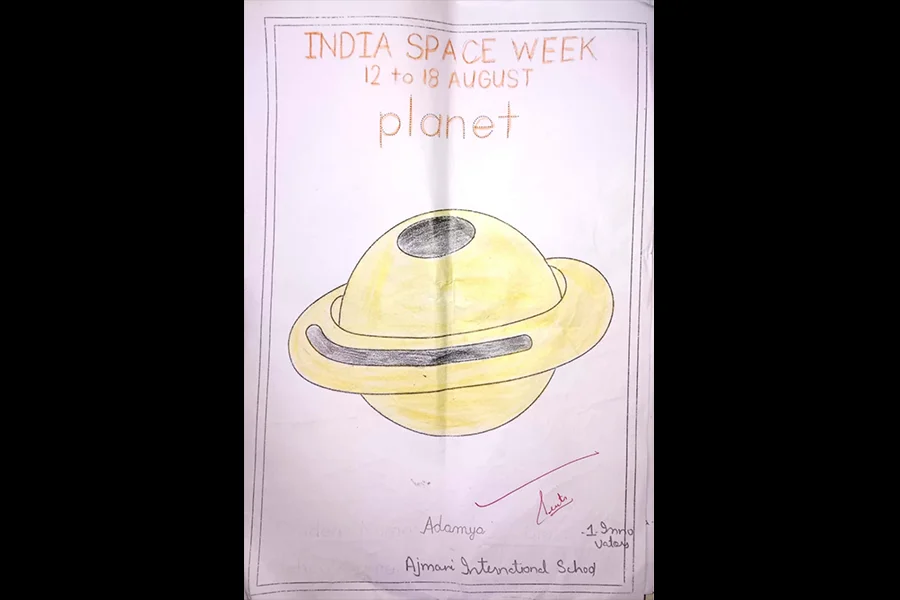 INDIA SPACE WEEK
12 to 18 AUGUST
planet
Adamya
1 Inno
vators
Ajmani International School